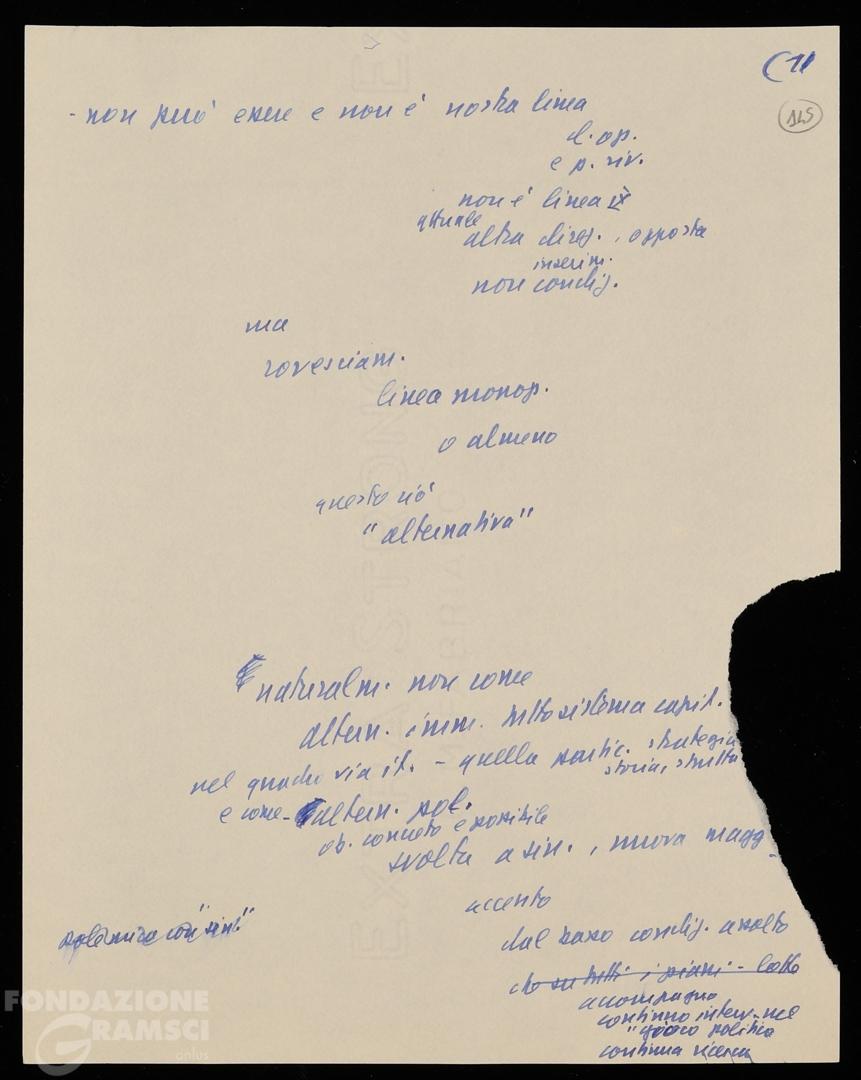 (11
145
- non può essere e non è nostra linea
cl. op.
e p. riv.
non è linea IX
attuale
altra direz., opposta
inserim.
non condiz.
ma
rovesciam.
linea monop.
o almeno
questo sì è
"alternativa"
naturalm. non come
altern. imm. tutto sistema capit.
nel quadro via it. - quella partic. strategia
storia, strutt
e come - altern. pol.
ob. concreto e possibile
svolta a sin., nuova magg
accento
polemica con "sin."
dal basso condiz. ascolto
che su tutti i piani - lotte
accompagno
continuo interv. nel
"gioco politico
continua ricerca
FONDAZIONE
GRAMSCI
onlus